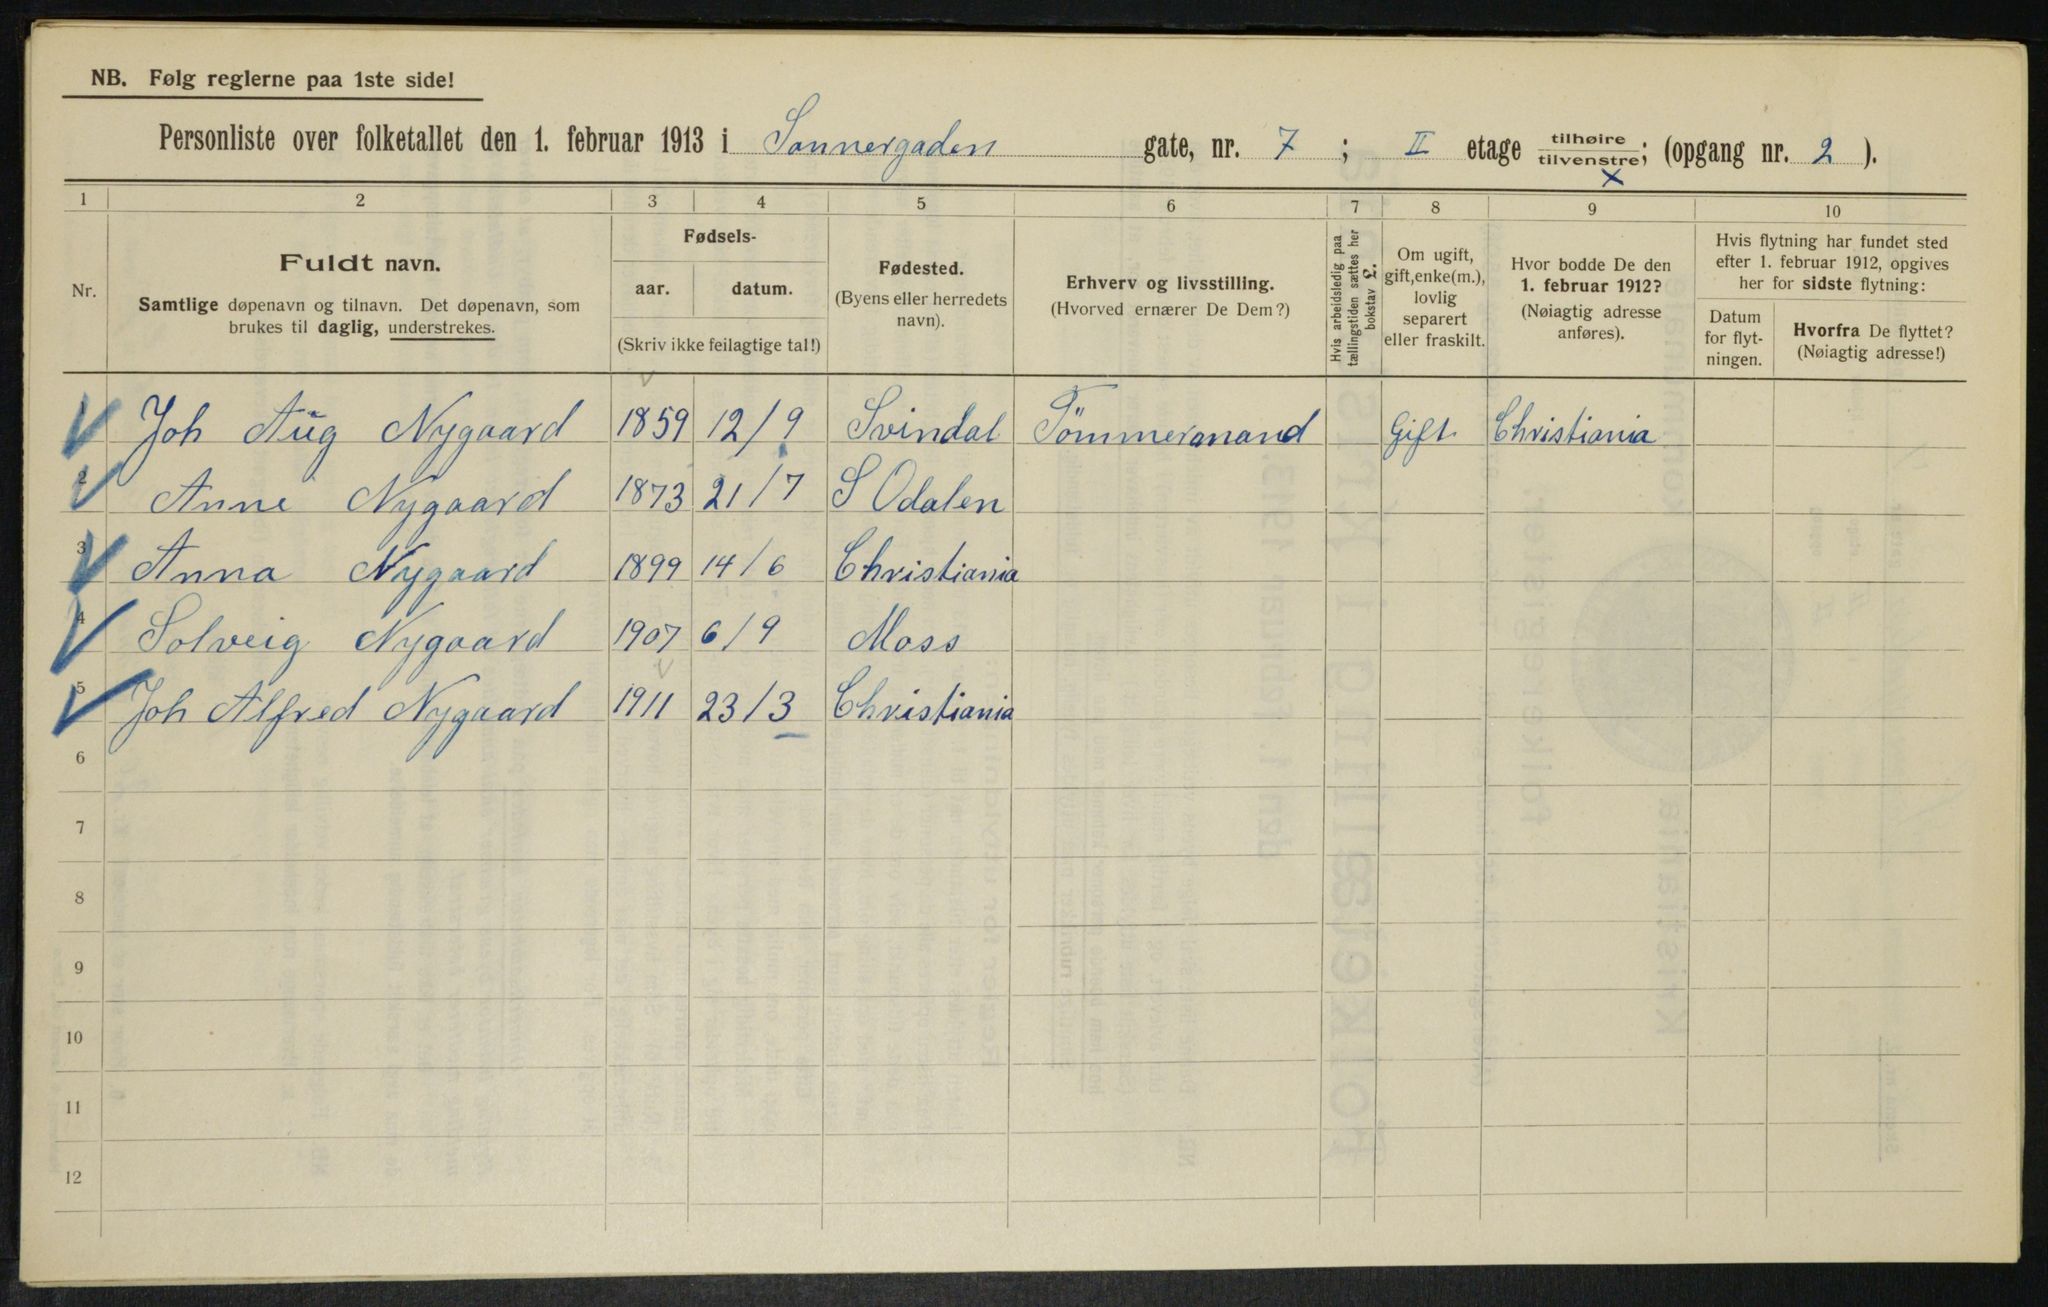 NB. Følg reglerne paa 1ste side!
Personliste over folketallet den 1. februar 1913 i Sannergaden gate, nr. 7 ; II etage tilhøire / tilvenstre; (opgang nr. 2 ).
x
1 2 3 4 5 6 7 8 9 10
Nr.
Fuldt navn.
Samtlige døpenavn og tilnavn. Det døpenavn, som
brukes til daglig, understrekes.
Fødsels-
aar. datum.
(Skriv ikke feilagtige tal!)
Fødested.
(Byens eller herredets
navn).
Erhverv og livsstilling.
(Hvorved ernærer De Dem?)
Hvis arbeidsledig paa
tællingstiden sættes her
bokstav £.
Om ugift,
gift, enke(m.),
lovlig
separert
eller fraskilt.
Hvor bodde De den
1. februar 1912?
(Nøiagtig adresse
anføres).
Hvis flytning har fundet sted
efter 1. februar 1912, opgives
her for sidste flytning:
Datum
for flyt-
ningen.
Hvorfra De flyttet?
(Nøiagtig adresse!)
1 Joh Aug Nygaard 1859 12/9 Svindal Tömmermand Gift Christiania
2 Anne Nygaard 1873 21/7 S Odalen
3 Anna Nygaard 1899 14/6 Christiania
4 Solveig Nygaard 1907 6/9 Moss
5 Joh Alfred Nygaard 1911 23/3 Christiania
6
7
8
9
10
11
12